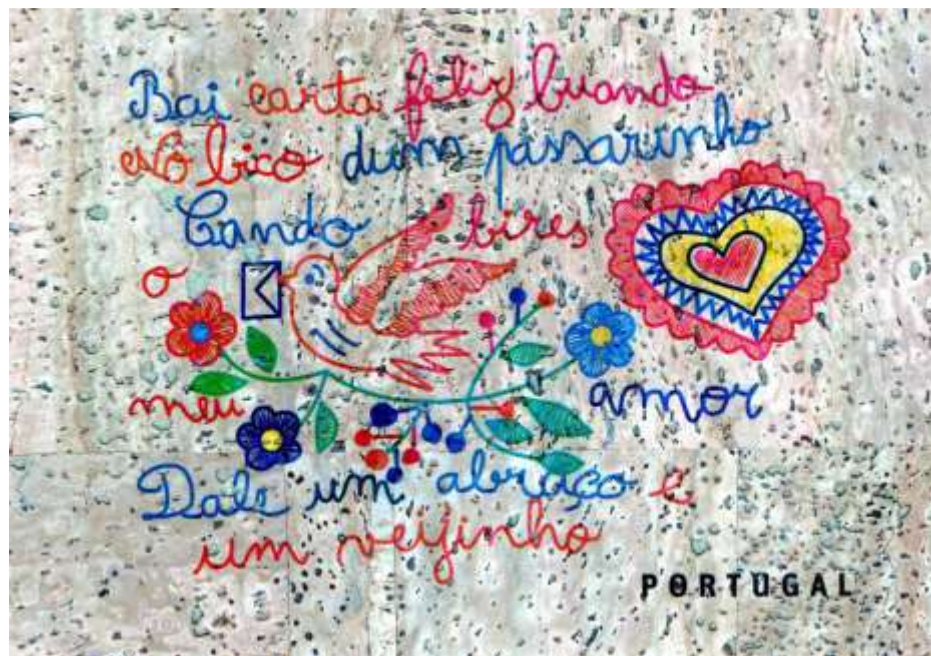 Bai carta feliz buando
nô bico dum passarinho
Cando bires
o
meu amor
Dale um abraço e
um veijinho
PORTUGAL